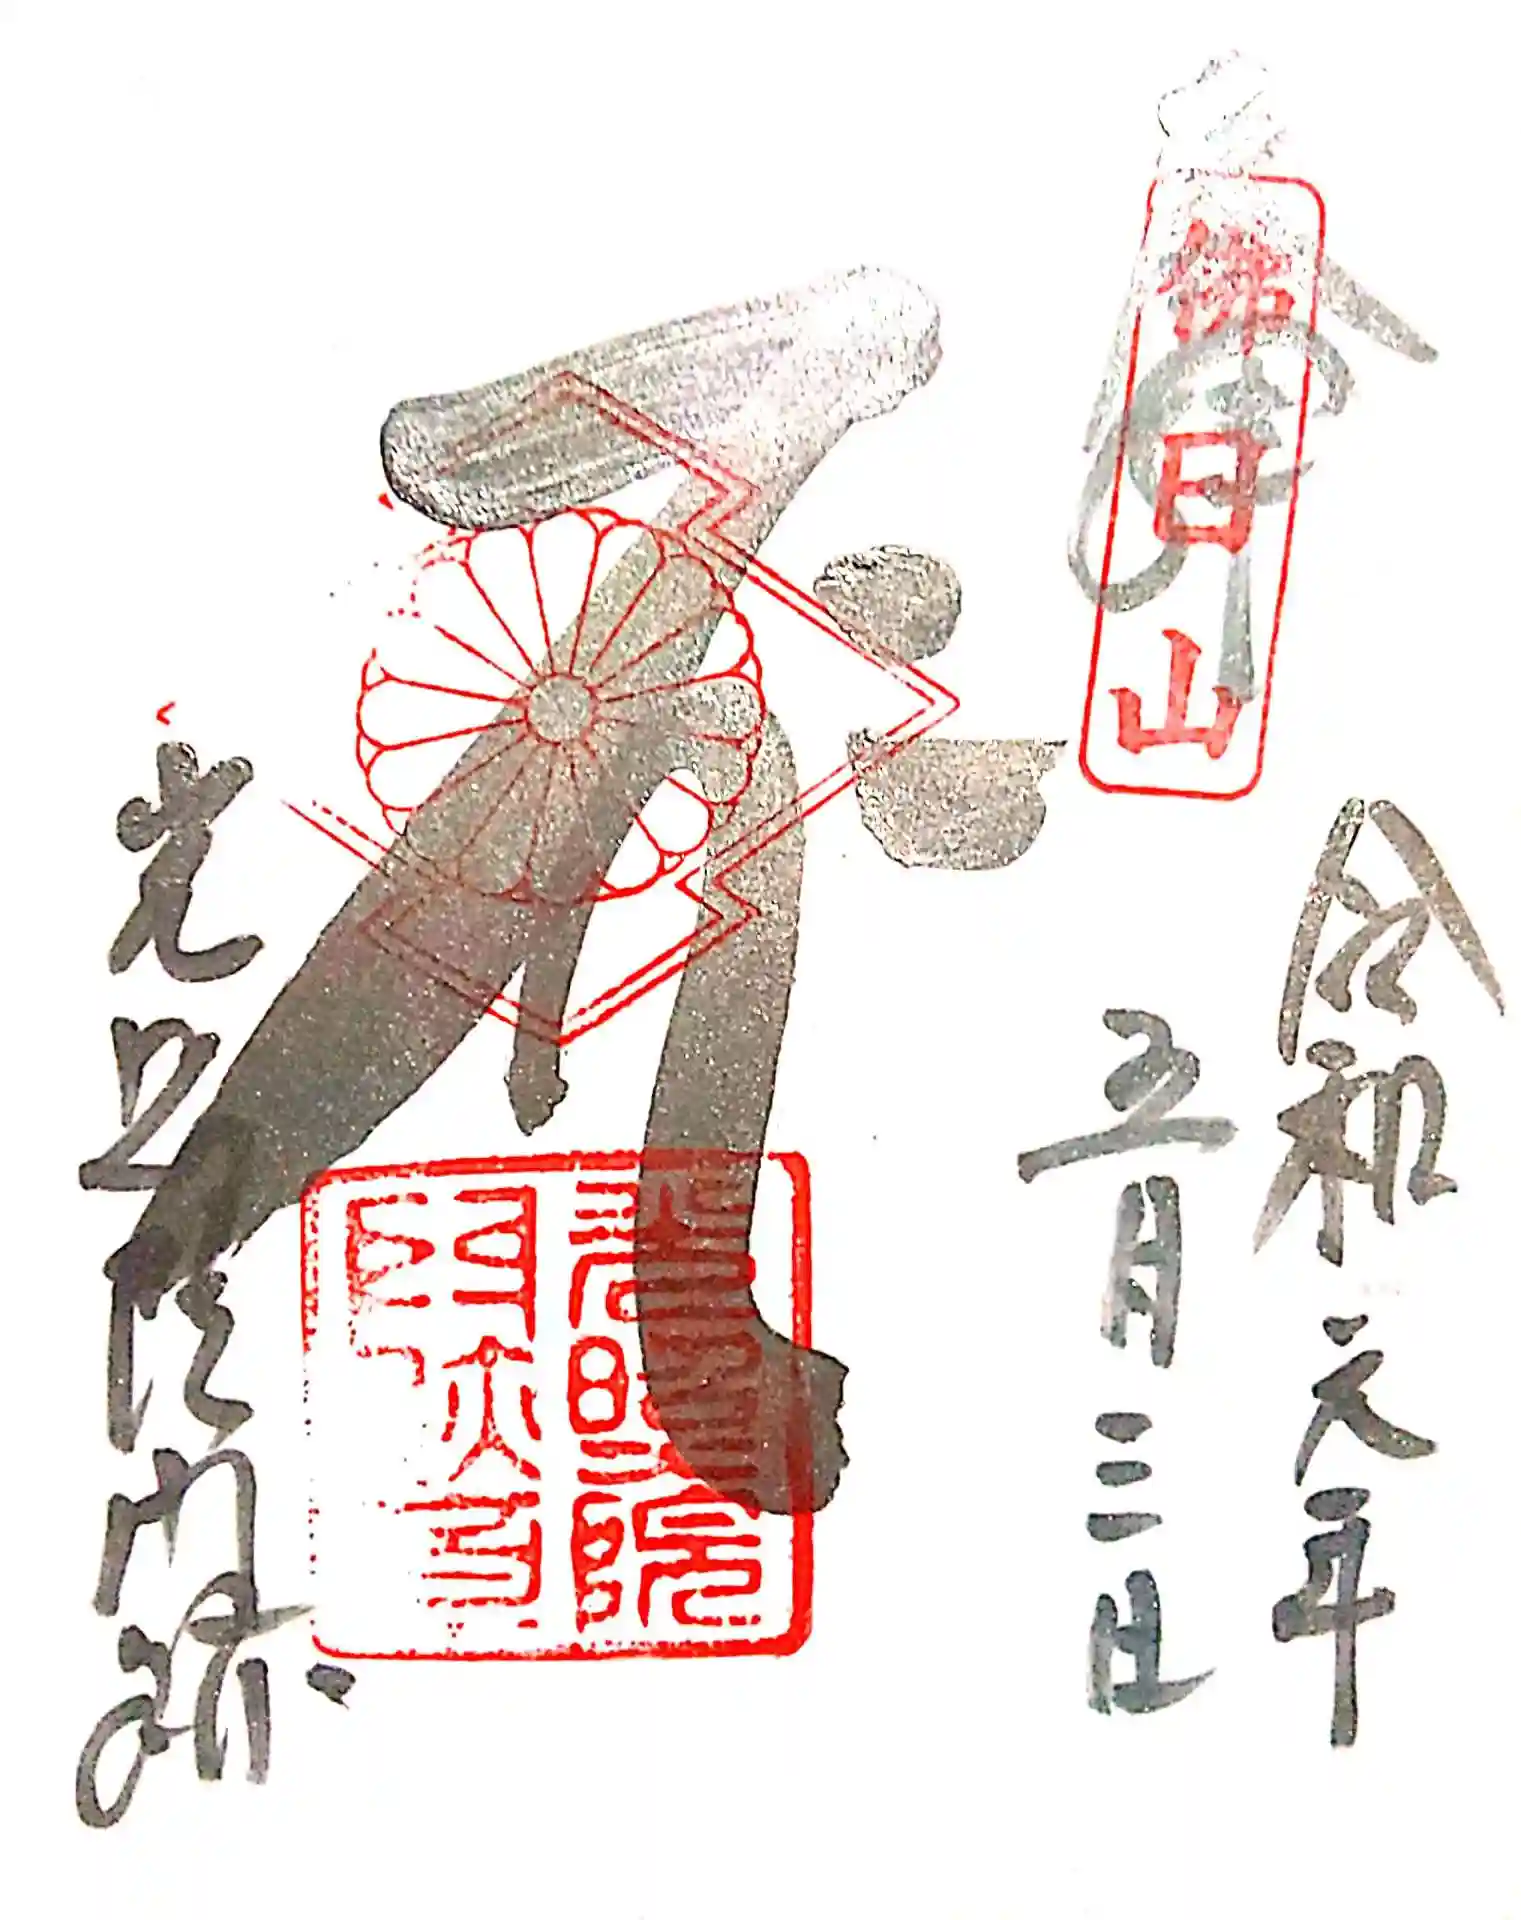 奉拝
佛日山
令和元年
五月三日
光照院
光照院門跡